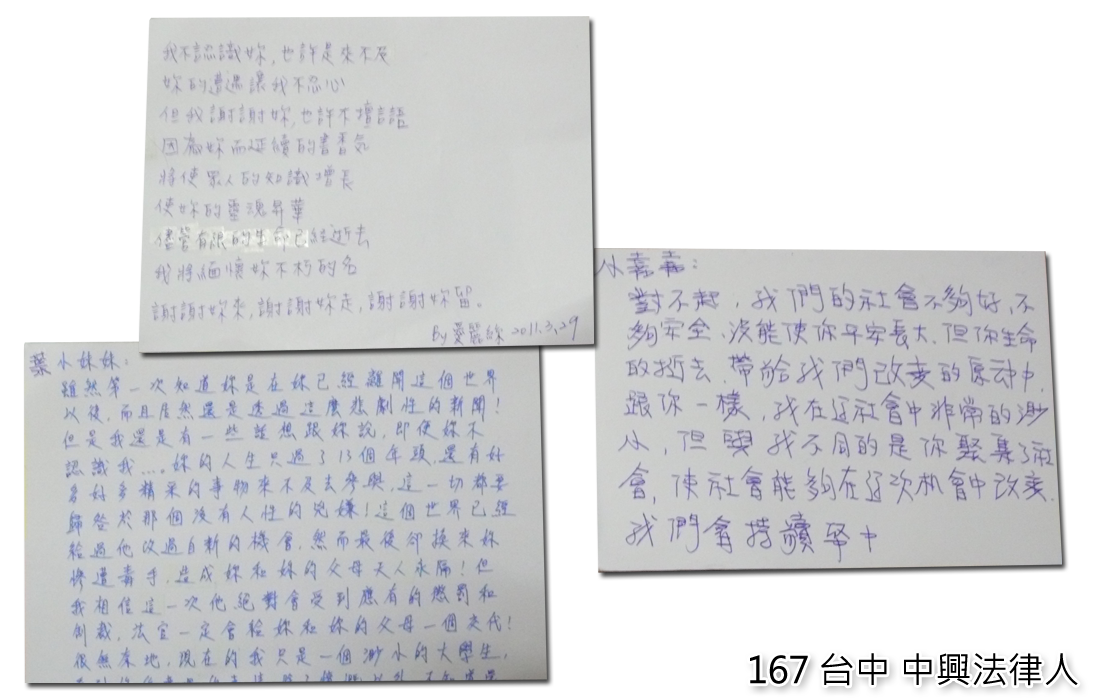 我不認識妳,也許是來不及
妳的遭遇讓我不忍心
但我謝謝妳,也許不擅言語
因為妳而延續的書香氣
將使眾人的知識增長
使妳的靈魂昇華
儘管有限的生命已經逝去
我將緬懷妳不朽的名
謝謝妳來,謝謝妳走,謝謝妳留。
By 2011.3.29
葉小妹妹:
雖然第一次知道妳是在妳已經離開這個世界
以後,而且居然還是透過這麼悲劇性的新聞!
但是我還是有一些話想跟妳說,即使妳不
認識我…,妳的人生只過了13個年頭,還有好
多好多精采的事物來不及去參與,這一切都要
歸咎於那個沒有人性的兇嫌!這個世界已經
給過他改過自新的機會,然而最後卻換來妳
慘遭毒手,造成妳和妳的父母天人永隔!但
我相信這一次他絕對會受到應有的懲罰和
制裁,法官一定會給妳和妳的父母一個交代!
很無奈地,現在的我只是一個渺小的大學生,
小嘉嘉:
對不起,我們的社會不夠好,不
夠安全,沒能使你平安長大,但你生命
的逝去,帶給我們改變的原動中,
跟你一樣,我在這社會中非常的渺
小,但與我不同的是你聚集了社
會,使社會能夠在這次機會中改變,
我們會持續努力
167 台中 中興法律人